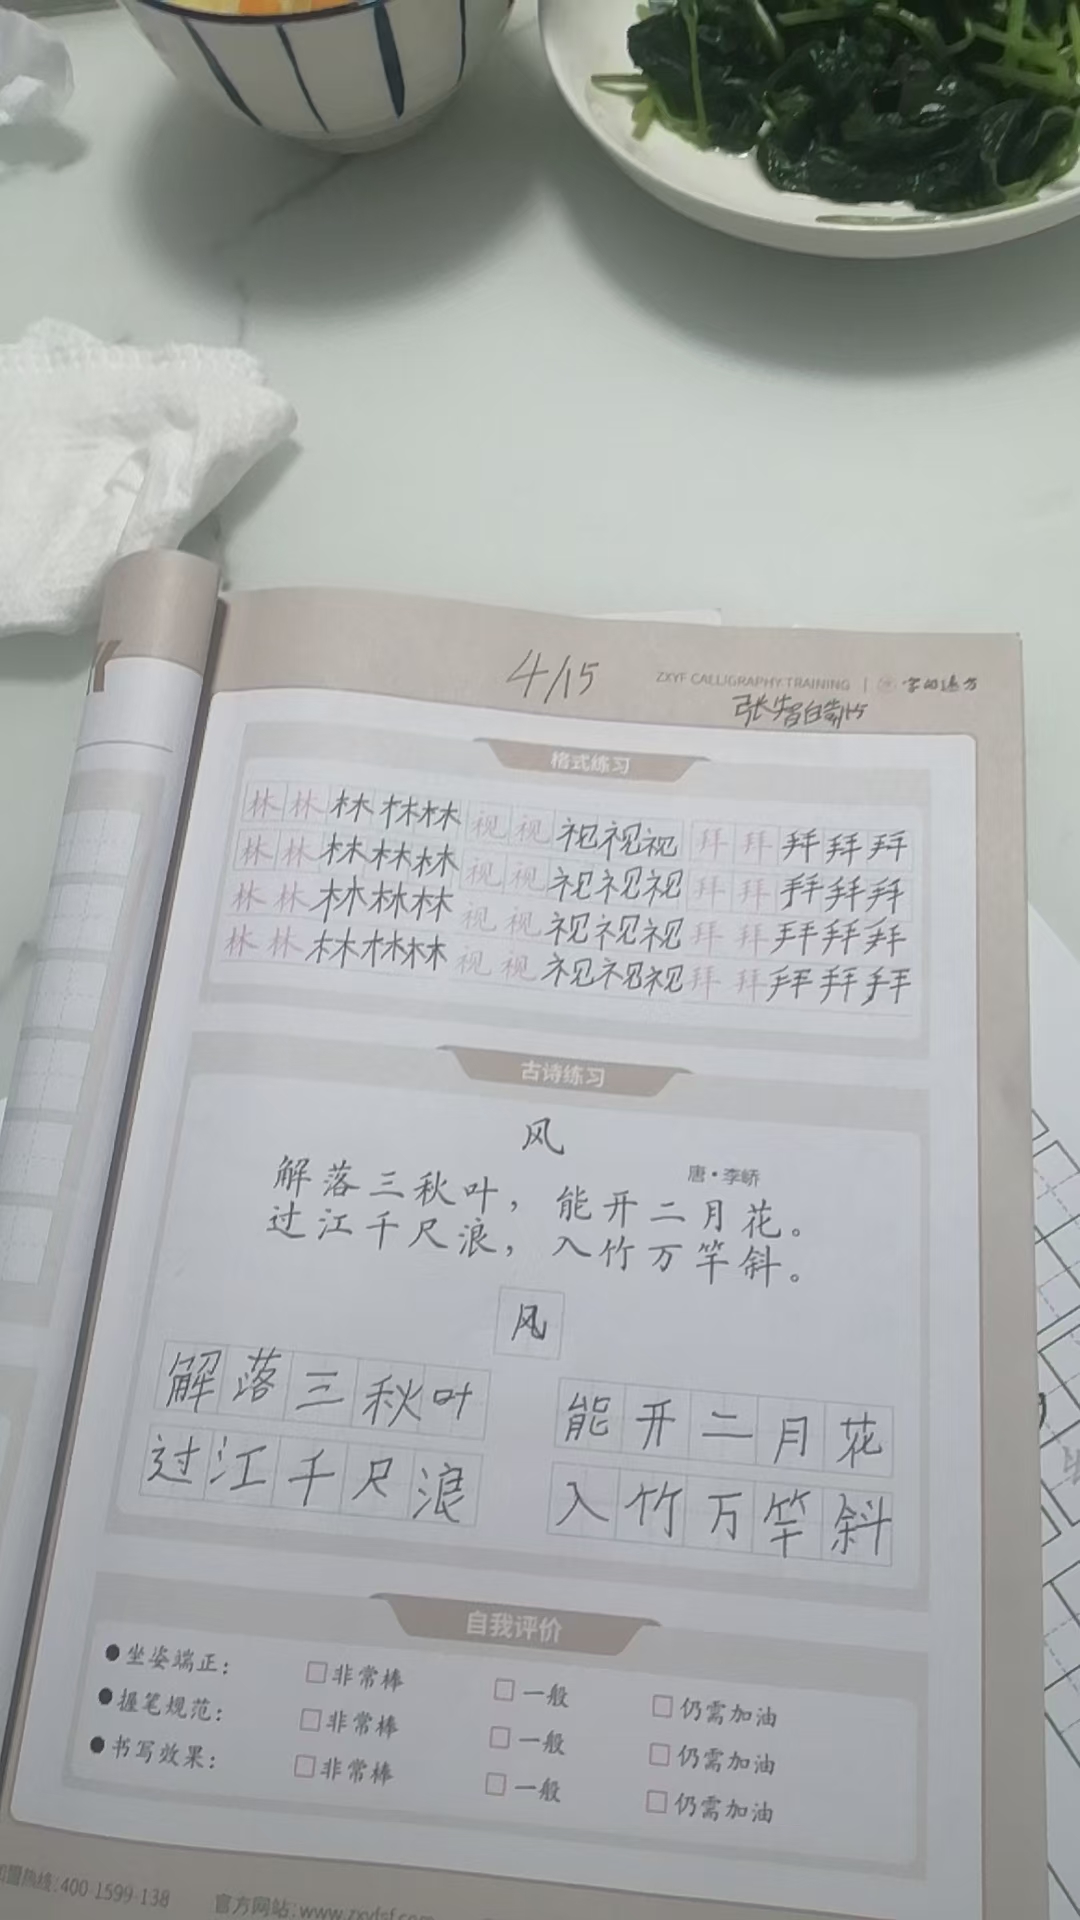 4/15
ZXYF CALLIGRAPHY TRAINING | 字的远方
格式练习
林 林 林 林 林 视 视 视 视 视 拜 拜 拜 拜 拜
林 林 林 林 林 视 视 视 视 视 拜 拜 拜 拜 拜
林 林 林 林 林 视 视 视 视 视 拜 拜 拜 拜 拜
林 林 林 林 林 视 视 视 视 视 拜 拜 拜 拜 拜
古诗练习
风
唐·李峤
解落三秋叶，能开二月花。
过江千尺浪，入竹万竿斜。
风
解落三秋叶 能开二月花
过江千尺浪 入竹万竿斜
自我评价
●坐姿端正： □非常棒 □一般 □仍需加油
●握笔规范： □非常棒 □一般 □仍需加油
●书写效果： □非常棒 □一般 □仍需加油
加盟热线:400-1599-138 官方网站: